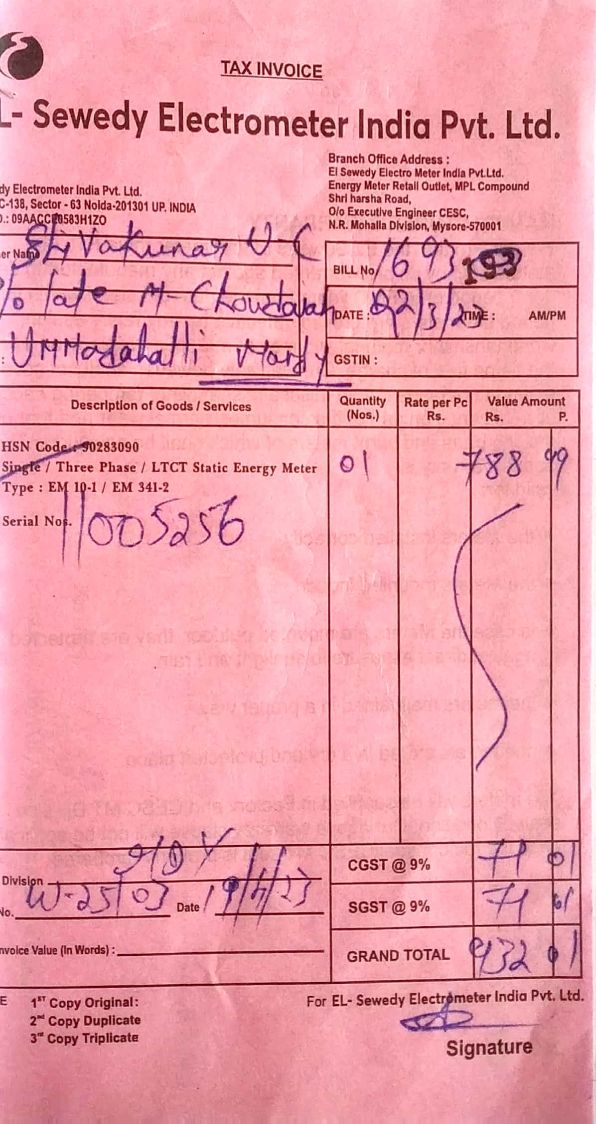 TAX INVOICE
EL- Sewedy Electrometer India Pvt. Ltd.
dy Electrometer India Pvt. Ltd.
C-138, Sector - 63 Noida-201301 UP. INDIA
Branch Office Address :
El Sewedy Electro Meter India Pvt.Ltd.
Energy Meter Retail Outlet, MPL Compound
Shri harsha Road,
O/o Executive Engineer CESC,
N.R. Mohalla Division, Mysore-570001
er Name Shivakumar U C
BILL No. 1693
late M-
DATE : 02/3/23 TIME : AM/PM
GSTIN :
Description of Goods / Services Quantity (Nos.) Rate per Pc Rs. Value Amount Rs. P.
HSN Code : 90283090
Single / Three Phase / LTCT Static Energy Meter 01 788 99
Type : EM 10-1 / EM 341-2
Serial Nos. 11005256
CGST @ 9% 71 01
Division
No. W-25/03 Date 19/4/23
SGST @ 9% 71 01
nvoice Value (In Words) :
GRAND TOTAL 932 01
E 1ST Copy Original:
2nd Copy Duplicate
3rd Copy Triplicate
For EL- Sewedy Electrometer India Pvt. Ltd.
Signature